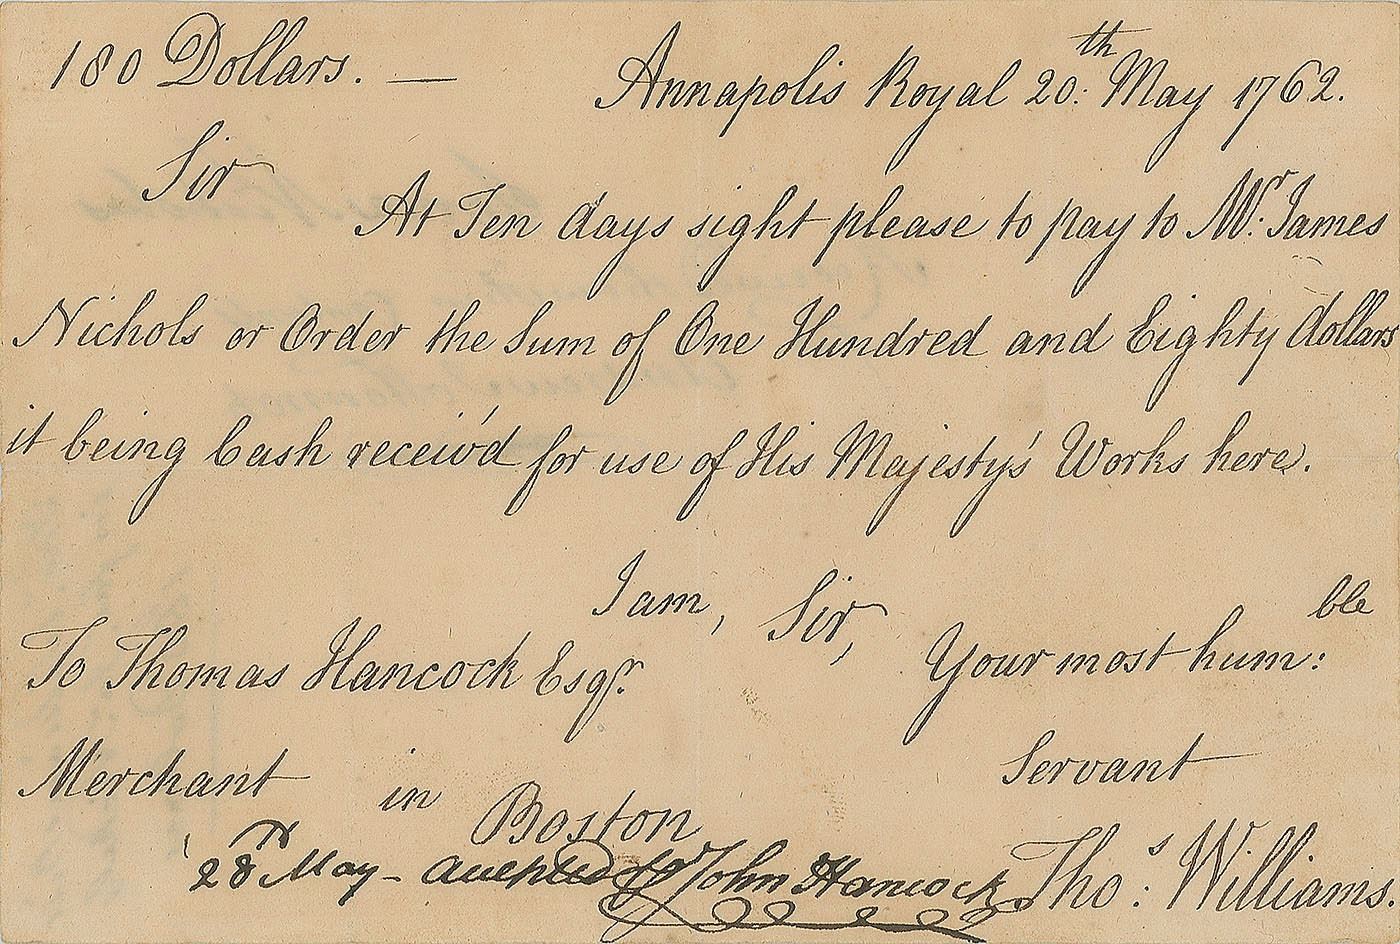 180 Dollars. —
Annapolis Royal 20:th May 1762.
Sir
At Ten days sight please to pay to Mr. James
Nichols or Order the Sum of One Hundred and Eighty dollars
it being Cash receiv'd for use of His Majesty's Works here.
I am, Sir,
Your most hum:ble
Servant
Tho:s Williams.
To Thomas Hancock Esqr.
Merchant in Boston
28th May – accepted John Hancock